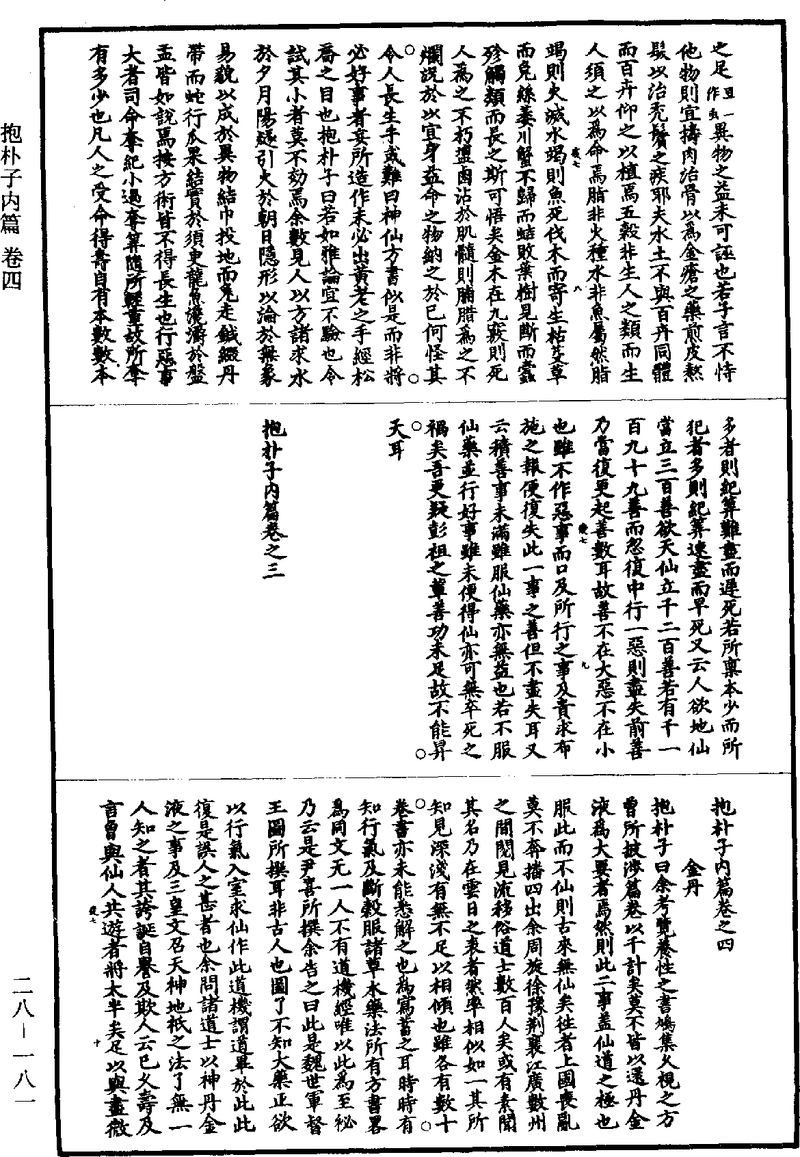 之足且一作虫異物之益未可誣也若子言不恃
他物則宜擣肉治骨以為金瘡之藥煎皮熬
髮以治禿鬢之疾耶夫水土不與百卉同體
而百卉仰之以植焉五穀非生人之類而生
人須之以為命焉脂非火種水非魚屬然脂
竭則火滅水竭則魚死伐木而寄生枯芟草
而兔絲萎川蟹不歸而蛣敗桑樹見斷而蠹
殄觸類而長之斯可悟矣金木在九竅則死
人為之不朽鹽鹵沾於肌髓則脯腊為之不
爛況於以宜身益命之物納之於已何怪其
令人長生乎或難曰神仙方書似是而非將
必好事者妄所造作未必出黃老之手經松
喬之目也抱朴子曰若如雅論宜不驗也今
試其小者莫不効焉余數見人以方諸求水
於夕月陽燧引火於朝日隱形以淪於無象
易貌以成於異物結巾投地而兔走鍼綴丹
帶而蛇行瓜果結實於須臾龍魚瀺灂於盤
盂皆如說焉按方術皆不得長生也行惡事
大者司命奪紀小過奪算隨所輕重故所奪
有多少也凡人之受命得壽自有本數數本
多者則紀算難盡而遲死若所稟本少而所
犯者多則紀算速盡而早死又云人欲地仙
當立三百善欲天仙立千二百善若有千一
百九十九善而忽復中行一惡則盡失前善
乃當復更起善數耳故善不在大惡不在小
也雖不作惡事而口及所行之事及責求布
施之報便復失此一事之善但不盡失耳又
云積善事未滿雖服仙藥亦無益也若不服
仙藥並行好事雖未便得仙亦可無卒死之
禍矣吾更疑彭祖之輩善功未足故不能昇
天耳
抱朴子內篇卷之三
抱朴子內篇卷之四
金丹
抱朴子曰余考覽養性之書鳩集久視之方
曾所披涉篇卷以千計矣莫不皆以還丹金
液為大要者焉然則此二事蓋仙道之極也
服此而不仙則古來無仙矣往者上國喪亂
莫不奔播四出余周旋徐豫荆襄江廣數州
之間閱見流移俗道士數百人矣或有素聞
其名乃在雲日之表者然率相似如一其所
知見深淺有無不足以相傾也雖各有數十
卷書亦未能悉解之也為寫蓄之耳時時有
知行氣及斷穀服諸草木藥法所有方書畧
為同文无一人不有道機經唯以此為至祕
乃云是尹喜所撰余告之曰此是魏世軍督
王圖所撰耳非古人也圖了不知大藥正欲
以行氣入室求仙作此道機謂道畢於此此
復是誤人之甚者也余問諸道士以神丹金
液之事及三皇文召天神地祇之法了無一
人知之者其誇誕自譽及欺人云已久壽及
言曾與仙人共遊者將太半矣足以與盡微
抱朴子内篇 卷四
二八－一八一